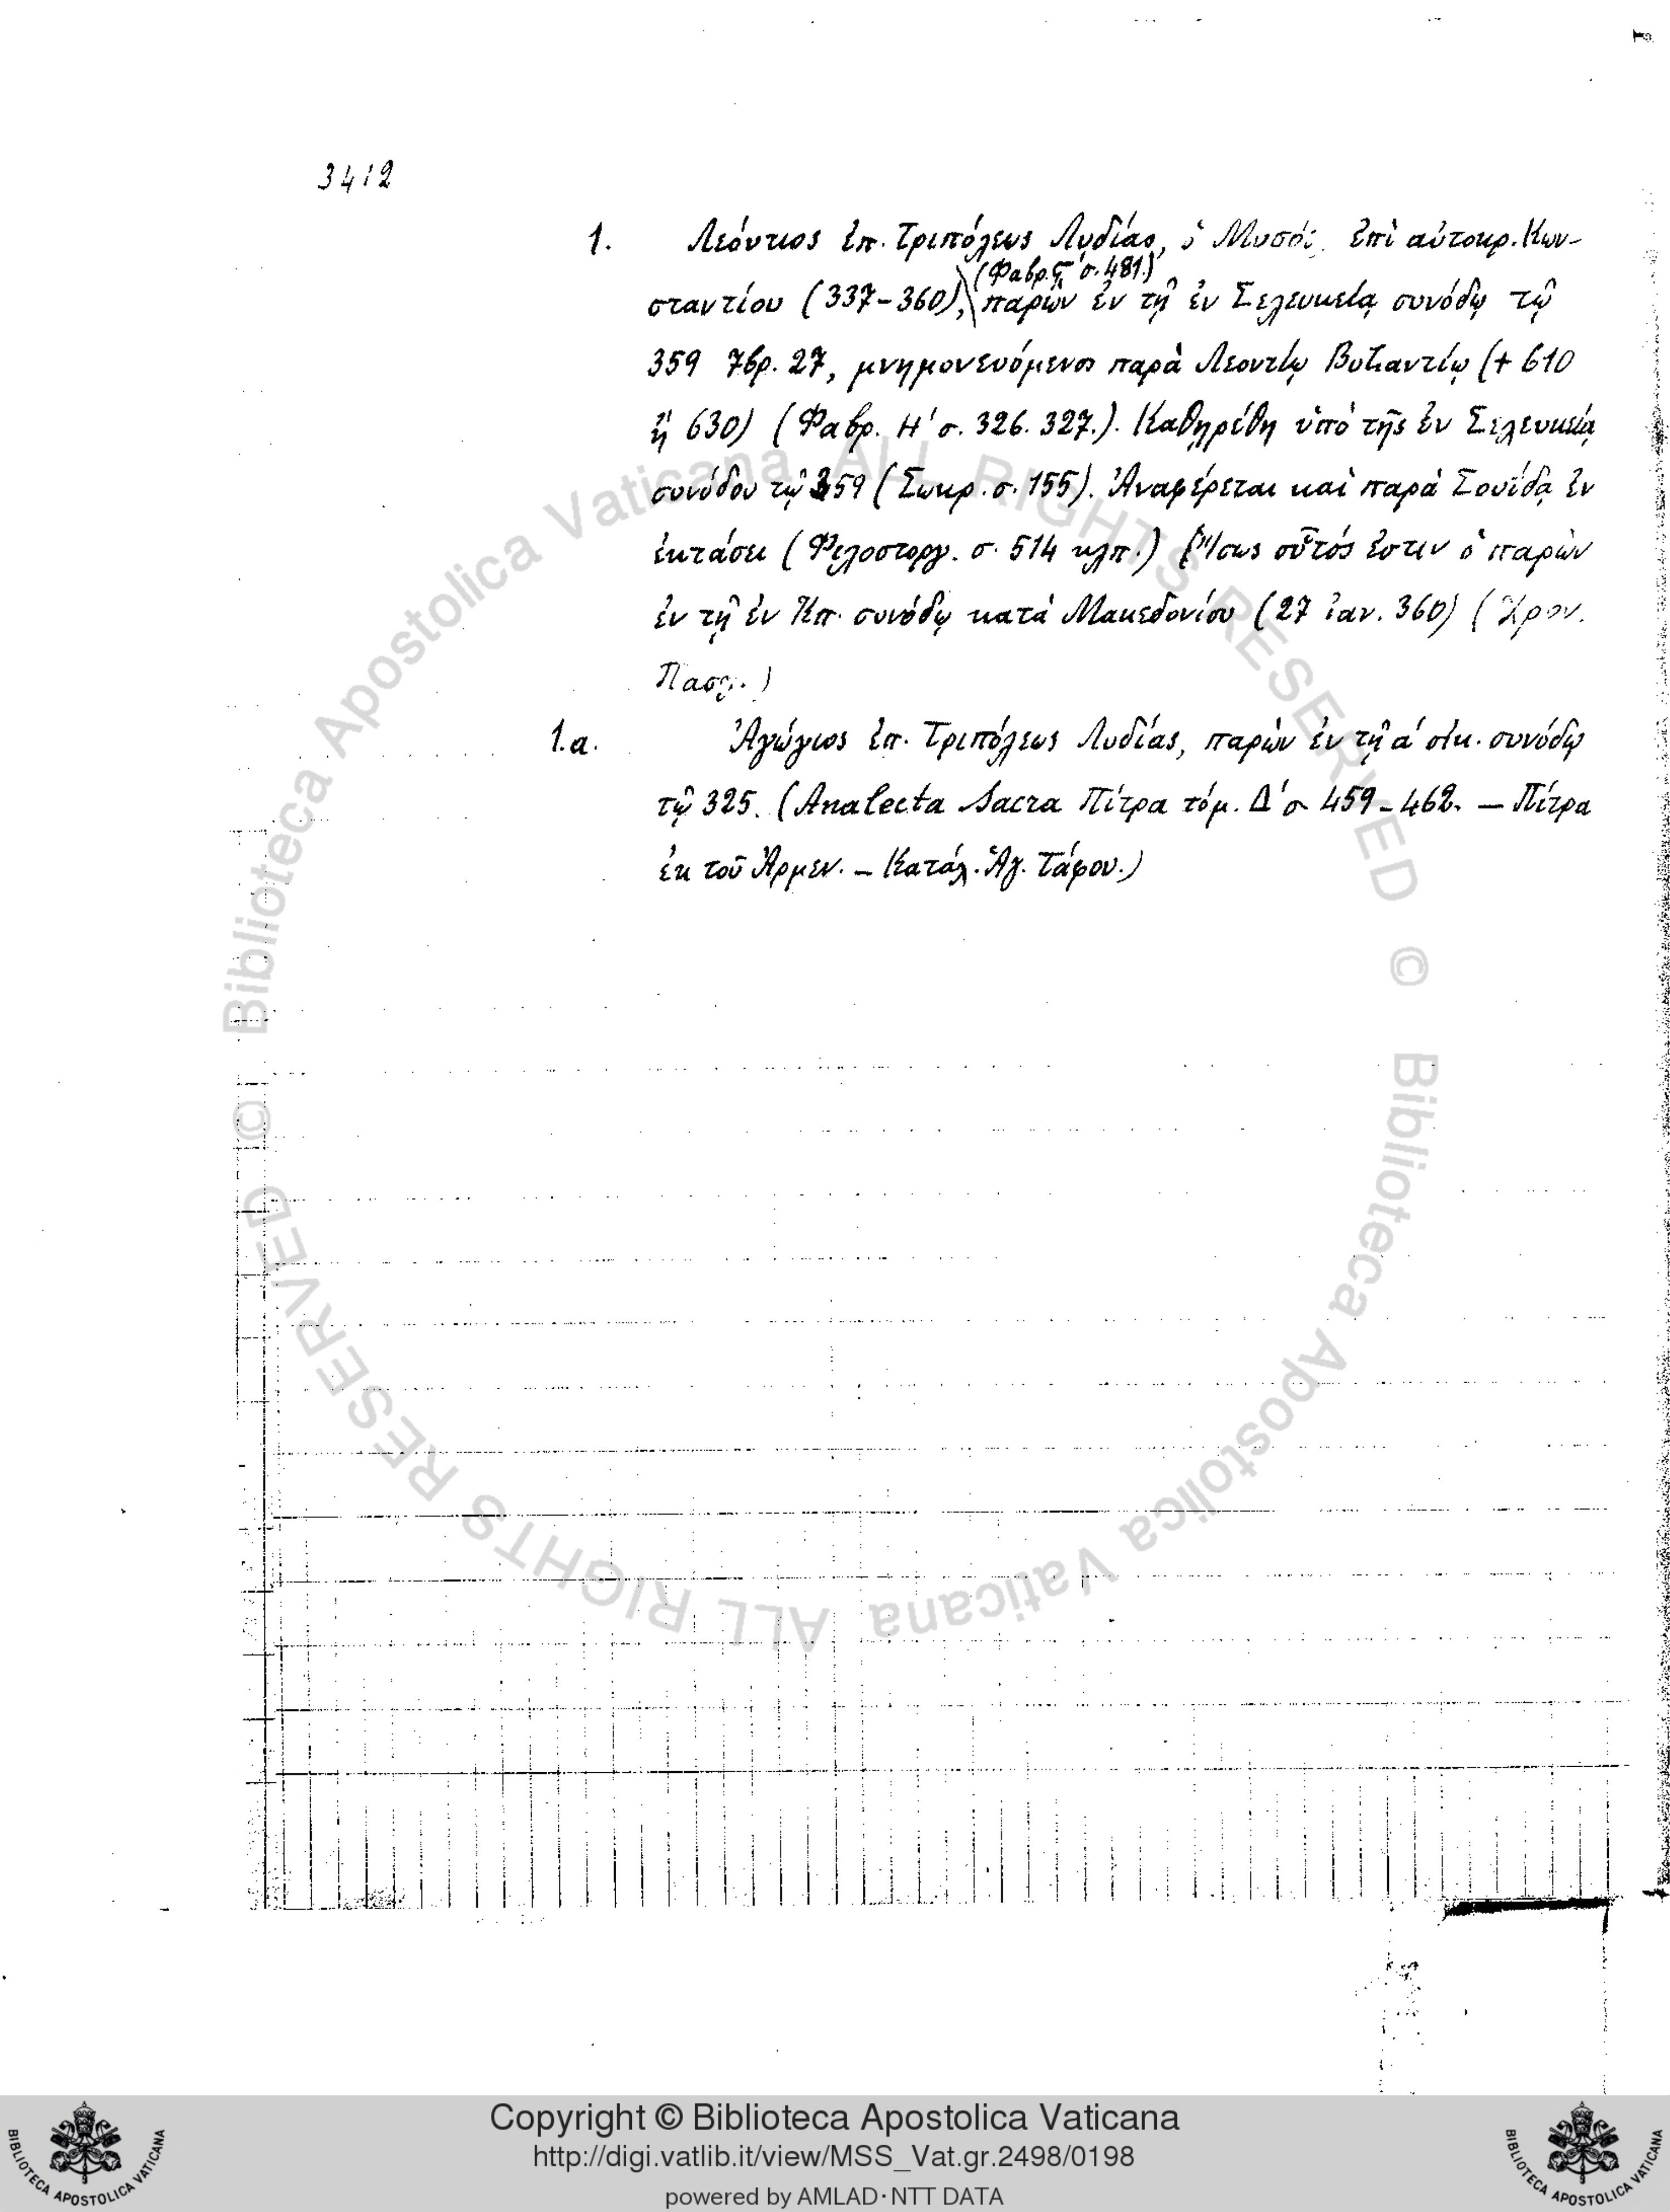 3412
1. Λεόντιος ἐπ. Τριπόλεως Λυδίας, ὁ Μυσός, ἐπὶ αὐτοκρ. Κων-
(Φαβρ. Ϛ' σ. 481.)
σταντίου (337-360), παρὼν ἐν τῇ ἐν Σελευκείᾳ συνόδῳ τῷ
359 7βρ. 27, μνημονευόμενος παρὰ Λεοντίῳ Βυζαντίῳ (+ 610
ἢ 630) (Φαβρ. Η' σ. 326. 327.). Καθῃρέθη ὑπὸ τῆς ἐν Σελευκείᾳ
συνόδου τῷ 359 (Σωκρ. σ. 155). Ἀναφέρεται καὶ παρὰ Σουΐδᾳ ἐν
ἐκτάσει (Φιλοστοργ. σ. 514 κλπ.) (Ἴσως οὗτός ἐστιν ὁ παρὼν
ἐν τῇ ἐν Κπ. συνόδῳ κατὰ Μακεδονίου (27 ἰαν. 360) (Χρον.
Πασχ.)
1.α. Ἀγώγιος ἐπ. Τριπόλεως Λυδίας, παρὼν ἐν τῇ α' οἰκ. συνόδῳ
τῷ 325. (Analecta Sacra Πίτρα τόμ. Δ' σ. 459-462. — Πίτρα
ἐκ τοῦ Ἀρμεν. — Κατάλ. Ἁγ. Τάφου.)
© Biblioteca Apostolica Vaticana ALL RIGHTS RESERVED
© Biblioteca Apostolica Vaticana ALL RIGHTS RESERVED
Copyright © Biblioteca Apostolica Vaticana
http://digi.vatlib.it/view/MSS_Vat.gr.2498/0198
powered by AMLAD·NTT DATA
BIBLIOTECA APOSTOLICA VATICANA
BIBLIOTECA APOSTOLICA VATICANA